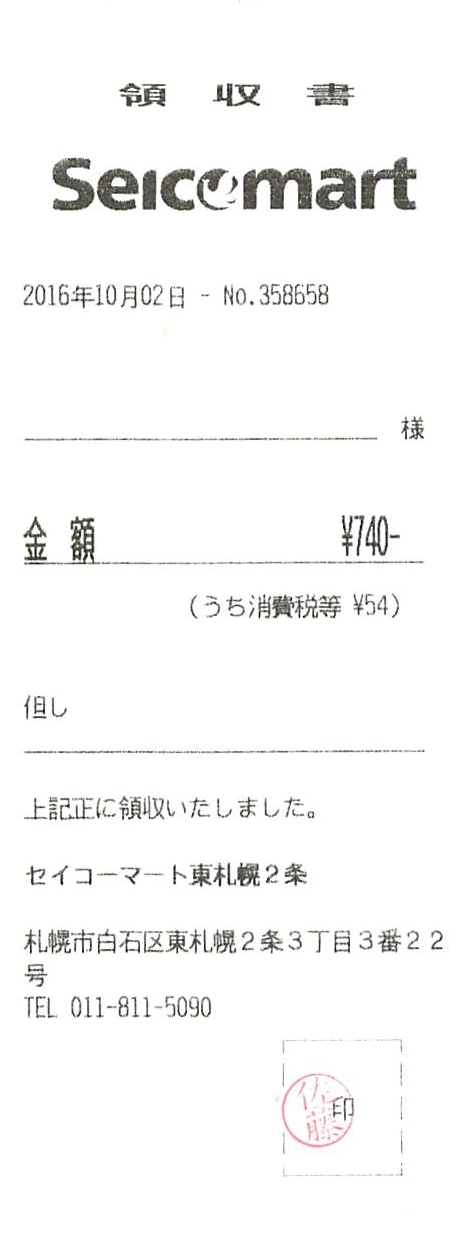 領収書
Seicomart
2016年10月02日 - No.358658
様
金額 ¥740-
(うち消費税等 ¥54)
但し
上記正に領収いたしました。
セイコーマート東札幌2条
札幌市白石区東札幌2条3丁目3番22
号
TEL 011-811-5090
印
佐藤